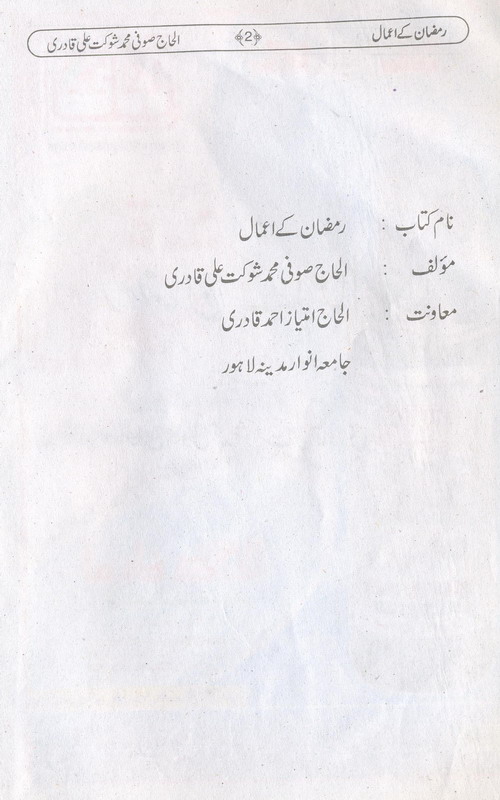 رمضان کے اعمال ﴿2﴾ الحاج صوفی محمد شوکت علی قادری
نام کتاب : رمضان کے اعمال
مؤلف : الحاج صوفی محمد شوکت علی قادری
معاونت : الحاج امتیاز احمد قادری
جامعہ انوار مدینہ لاہور